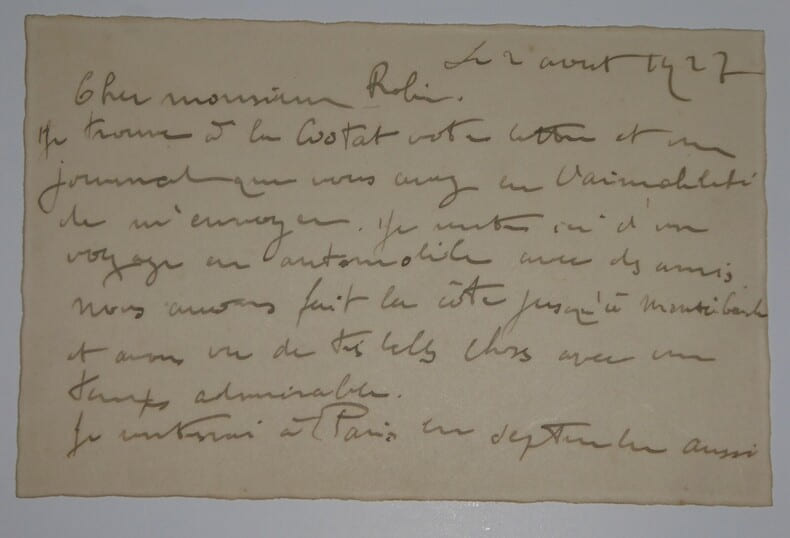 Le 2 aout 1927
Cher monsieur Robin.
Je trouve à la Costat votre lettre et un
journal que vous avez eu l'aimabilité
de m'envoyer. Je rentre ici d'un
voyage en automobile avec des amis.
nous avons fait la côte jusqu'à
et avons vu de très belles choses avec un
temps admirable.
Je rentrerai à Paris en septembre aussi